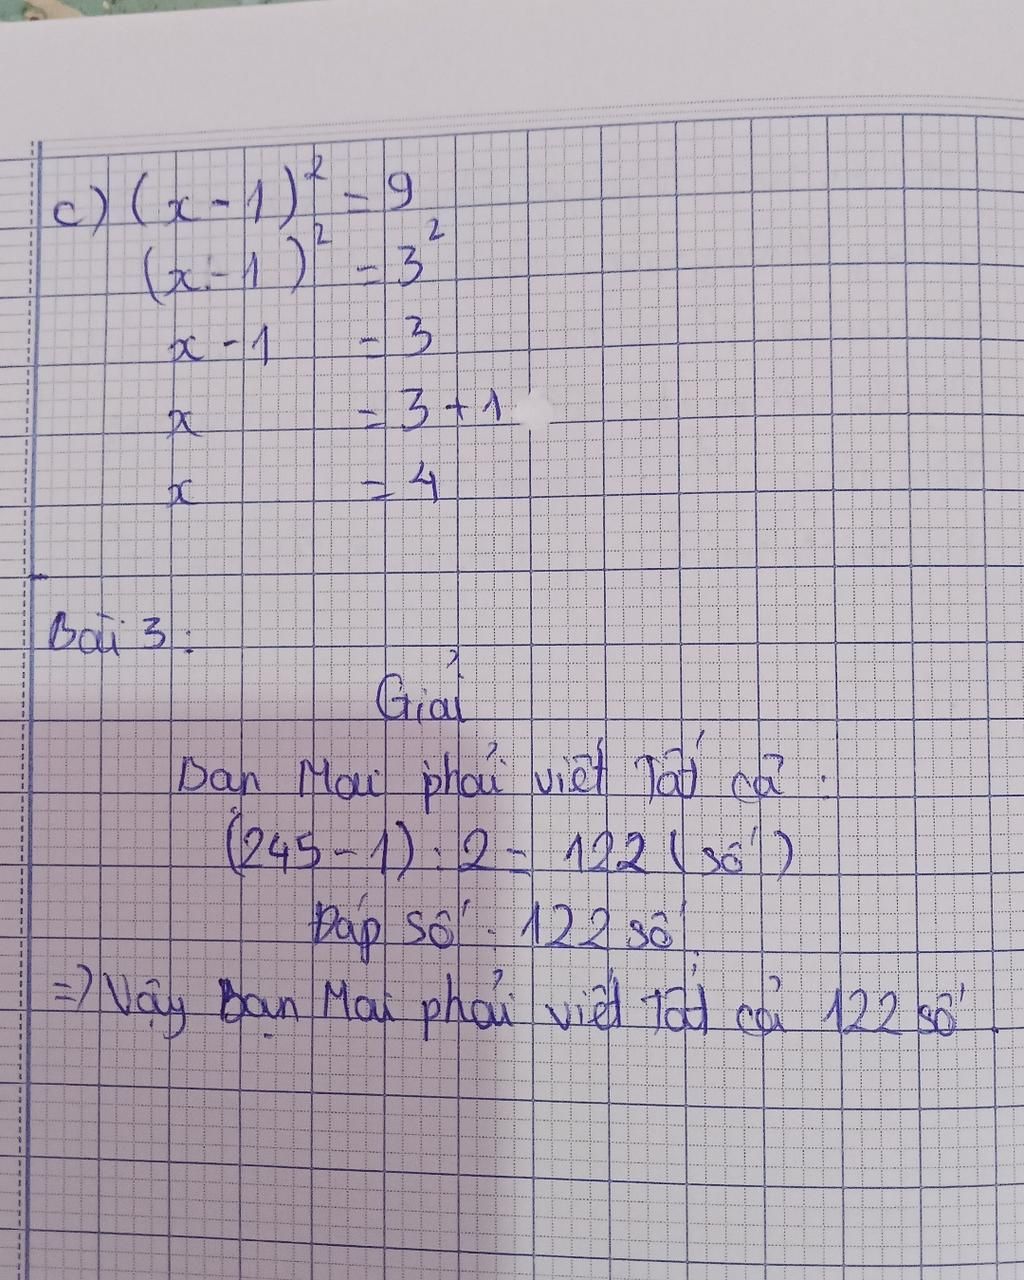 c) (x - 1)² = 9
(x - 1)² = 3²
x - 1 = 3
x = 3 + 1
x = 4
Bài 3:
Giải
Bạn Mai phải viết tất cả :
(245 - 1) : 2 = 122 (số)
Đáp số : 122 số
=> Vậy bạn Mai phải viết tất cả 122 số.